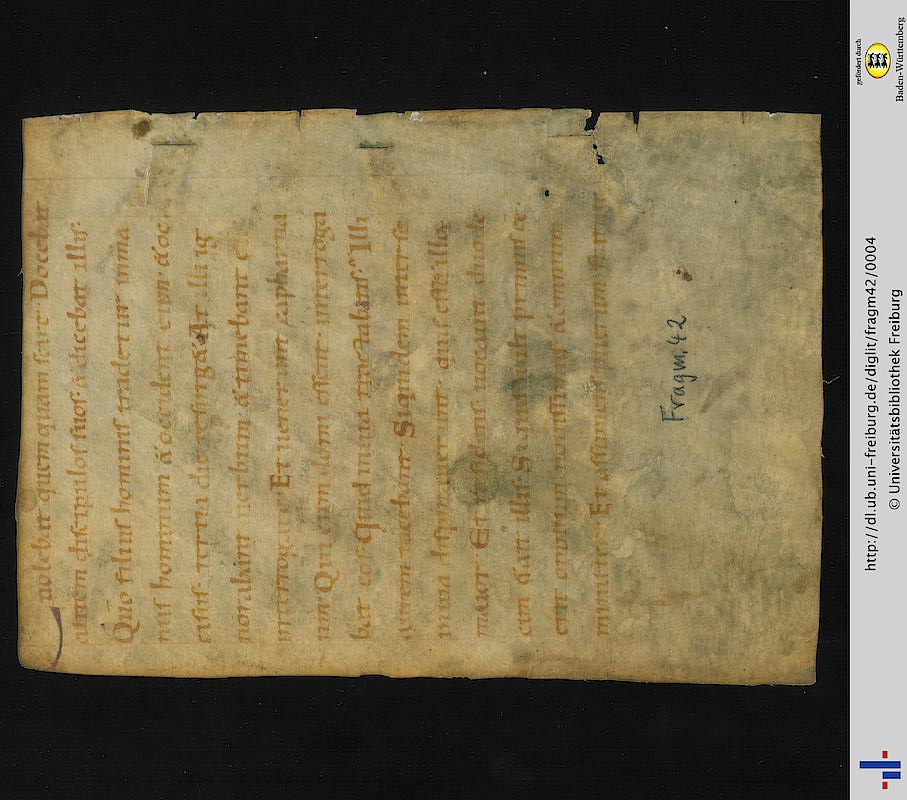 uolebat quemquam scire Docebat
autem discipulos suos. & dicebat illis:
Quō filius hominis tradetur in ma
nus hominum & occident eum & occi
sus tertia die resurg&. At illi ig
norabant uerbum & timebant
interrogare Et uenerunt capharna
um Qui cum domi essent interroga
bat eos Quid in uia tractabatis. Illi
autem tacebant Siquidem inter se
in uia disputauerant. quis esse illor
maior Et residens uocauit duode
cim & ait illis. Si quis uult primus e
erit omnium nouissimus & omnium
minister Et
Fragm. 42
gefördert durch
Baden-Württemberg
http://dl.ub.uni-freiburg.de/diglit/fragm42/0004
© Universitätsbibliothek Freiburg